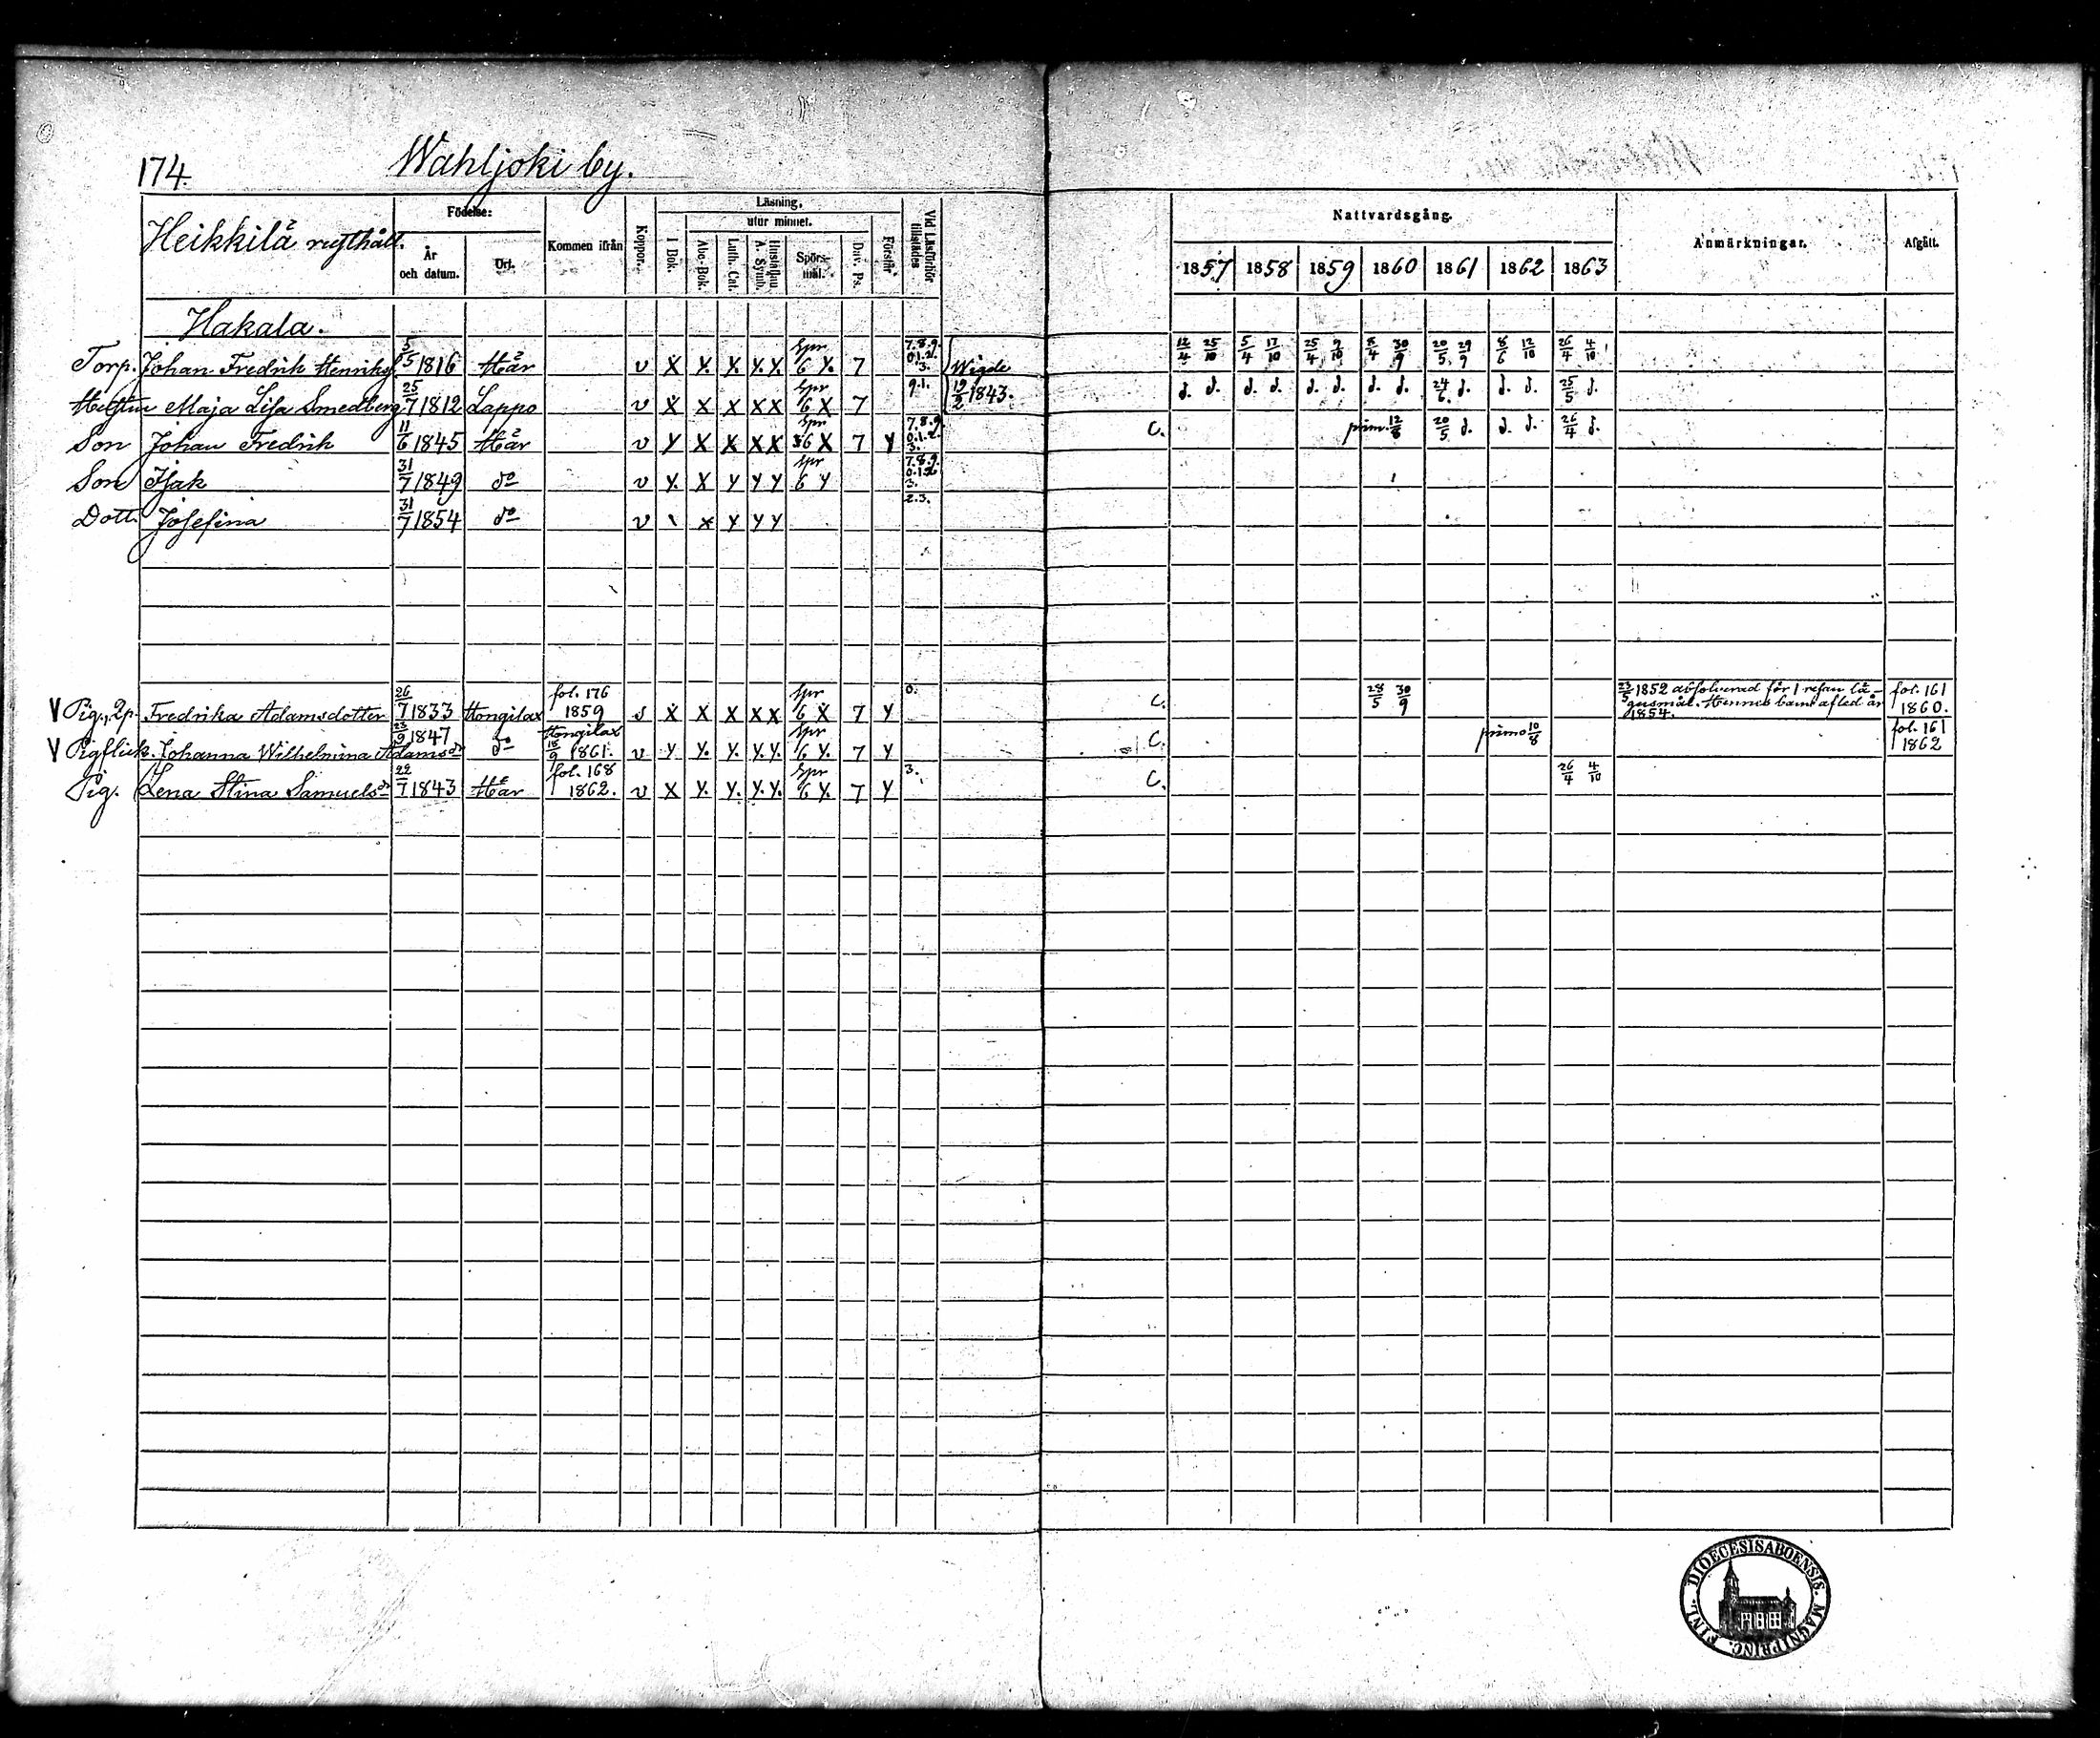 174. Wahljoki by.
Heikkilä rusthåll. Födelse: År och datum. Ort. Kommen ifrån Koppor. Läsning, I Bok. utur minnet. Abc-Bok. Luth. Cat. Hustaflan A. Symb. Spörs-mål. Dav. Ps. Förstår Vid Läsförhör tillstädes Nattvardsgång. 1857 1858 1859 1860 1861 1862 1863 Anmärkningar. Afgått.
Hakala.
Torp. Johan Fredrik Henriks 5/5 1816 Här v X Y. Y. Y. Y. Spr 6 Y. 7 7.8.9. 0.1.2. 3. Wigde 12/4 25/10 5/4 17/10 25/4 9/10 8/4 30/9 20/5 29/9 8/6 12/10 26/4 4/10
Hustru Maja Lisa Smedberg 25/7 1812 Lappo v X X X X X Spr 6 X 7 9.1. 19/2 1843. d. d. d. d. d. d. d. d. 24/6 d. d. d. 25/5 d.
Son Johan Fredrik 11/6 1845 Här v Y X X X X Spr 6 X 7 Y 7.8.9 0.1.2. 3. C. prim. 12/8 20/5 d. d. d. 26/4 d.
Son Isak 31/7 1849 do v Y. X Y Y Y Spr 6 Y 7.8.9. 0.1.2 3.
Dott. Josefina 31/7 1854 do v \ x Y Y Y 2.3.
V Pig., 2p. Fredrika Adamsdotter 26/7 1833 Hongilax fol. 176 1859 s X X X X X Spr 6 X 7 Y 0. C. 28/5 30/9 23/5 1852 absolverad för 1 resan lä-gersmål. Hennes barn afled år 1854. fol. 161 1860.
V Pigflick. Johanna Wilhelmina Adamsdr 23/9 1847 do Hongilax 18/9 1861. v Y Y. Y. Y. Y. Spr 6 Y. 7 Y C. primo 10/8 fol. 161 1862
Pig. Lena Stina Samuelsdr 22/7 1843 Här fol. 168 1862. v X Y. Y. Y. Y. Spr 6 Y. 7 Y 3. C. 26/4 4/10
DIOECESIS ABOENSIS. MAGNI PRINC. FINL.